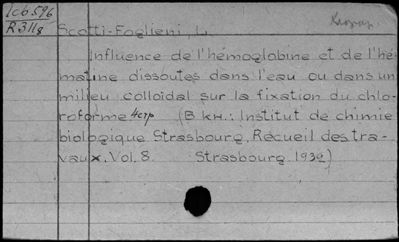 1c6596
R311s
Scotti-Foglieni, L.
Influence de l'hémoglobine et de l'hé-
matine dissoutes dans l'eau ou dans un
milieu colloidal sur la fixation du chlo-
roforme 4стр (В кн.: Institut de chimie
biologique Strasbourg. Recueil des tra-
vaux. Vol. 8. Strasbourg. 1932)